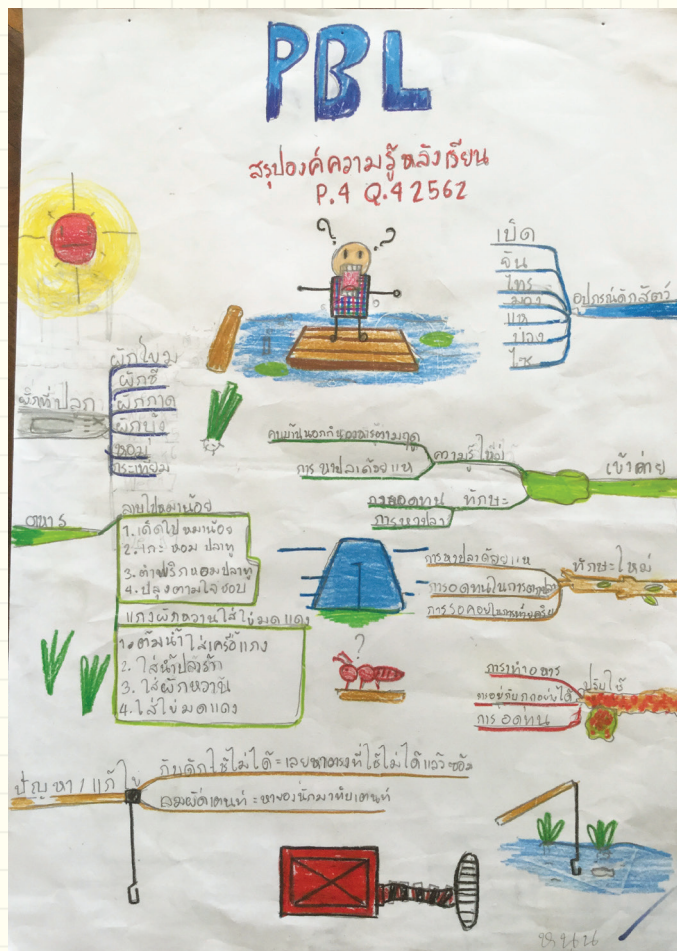 PBL
สรุปองค์ความรู้หลังเรียน
P.4 Q.4 2562
? ?
เบ็ด
จั่น
ไทร
มอง
แห
ป่อง
ไซ
อุปกรณ์ดักสัตว์
ผักโขม
ผักชี
ผักกาด
ผักบุ้ง
หอม
กระเทียม
ผักที่ปลูก
คนบ้านนอกกินอาหารตามฤดู
การหาปลาด้วยแห
ความรู้ใหม่
การอดทน ทักษะ
การหาปลา
เข้าค่าย
อาหาร
ลาบใบหมาน้อย
1. เด็ดใบหมาน้อย
2. แกะ หอม ปลาทู
3. ตำพริกหอมปลาทู
4. ปลุงตามใจชอบ
แกงผักหวานใส่ไข่มดแดง
1. ต้มน้ำใส่เครื่องแกง
2. ใส่น้ำปลาร้า
3. ใส่ผักหวาน
4. ใส่ไข่มดแดง
การหาปลาด้วยแห
การอดทนในการหาปลา
ทักษะใหม่
?
การทำอาหาร
การอดทน
ปรับใช้
ปัญหา / แก้ไข
กับดักใช้ไม่ได้ = เลยหาตรงที่ใช้ไม่ได้แล้วซ่อม
ลมพัดเตนท์ = หาของหนักมาทับเตนท์